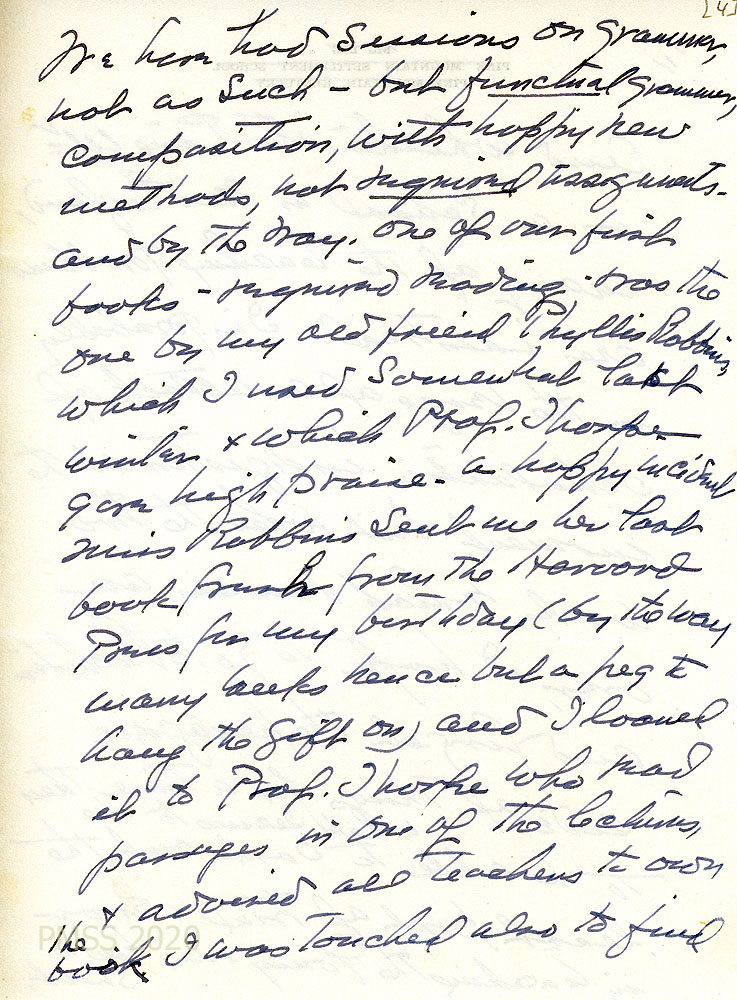 [4]
We have had Sessions on grammar,
not as such - but functional grammar,
composition, with happy new
methods, not required assignments -
and by the way. one of our first
books - required reading - was the
one by my old friend Phyllis Robbins,
which I used somewhat last
winter & which Prof. Thorpe
gave high praise - a happy incident
Miss Robbins sent me her last
book fresh from the Harvard
Press for my birthday (by the way
many weeks hence but a peg to
hang the gift on) and I loaned
it to Prof. Thorpe who read
passages in one of the lectures,
& advised all teachers to own
the book. I was touched also to find
PMSS 2020